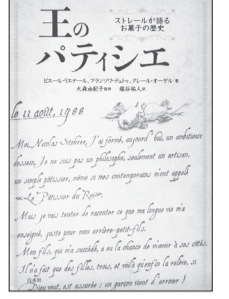 王の
パティシエ
ストレールが語る
お菓子の歴史
ピエール・リエナール、フランソワ・デュトゥ、クレール・オーゲル 著
大森由紀子 監修 塩谷祐人 訳
le 11 août, 1788
Moi, Nicolas Stohrer, j'ai formé, aujourd'hui, un ambitieux
dessein. Je ne suis pas un philosophe, seulement un artisan,
un simple pâtissier, même si mes contemporains m'ont appelé
« Le Pâtissier du Roi ».
Mais je vais tenter de raconter ce que ma longue vie m'a
enseigné, juste pour mon arrière-petit-fils.
Mon fils, qui m'a succédé, a eu la chance de m'avoir à ses côtés.
Il n'a fait que des filles, trois, et voilà qu'enfin la relève, si
Dieu veut, est assurée : un garçon vient d'arriver !
白水社